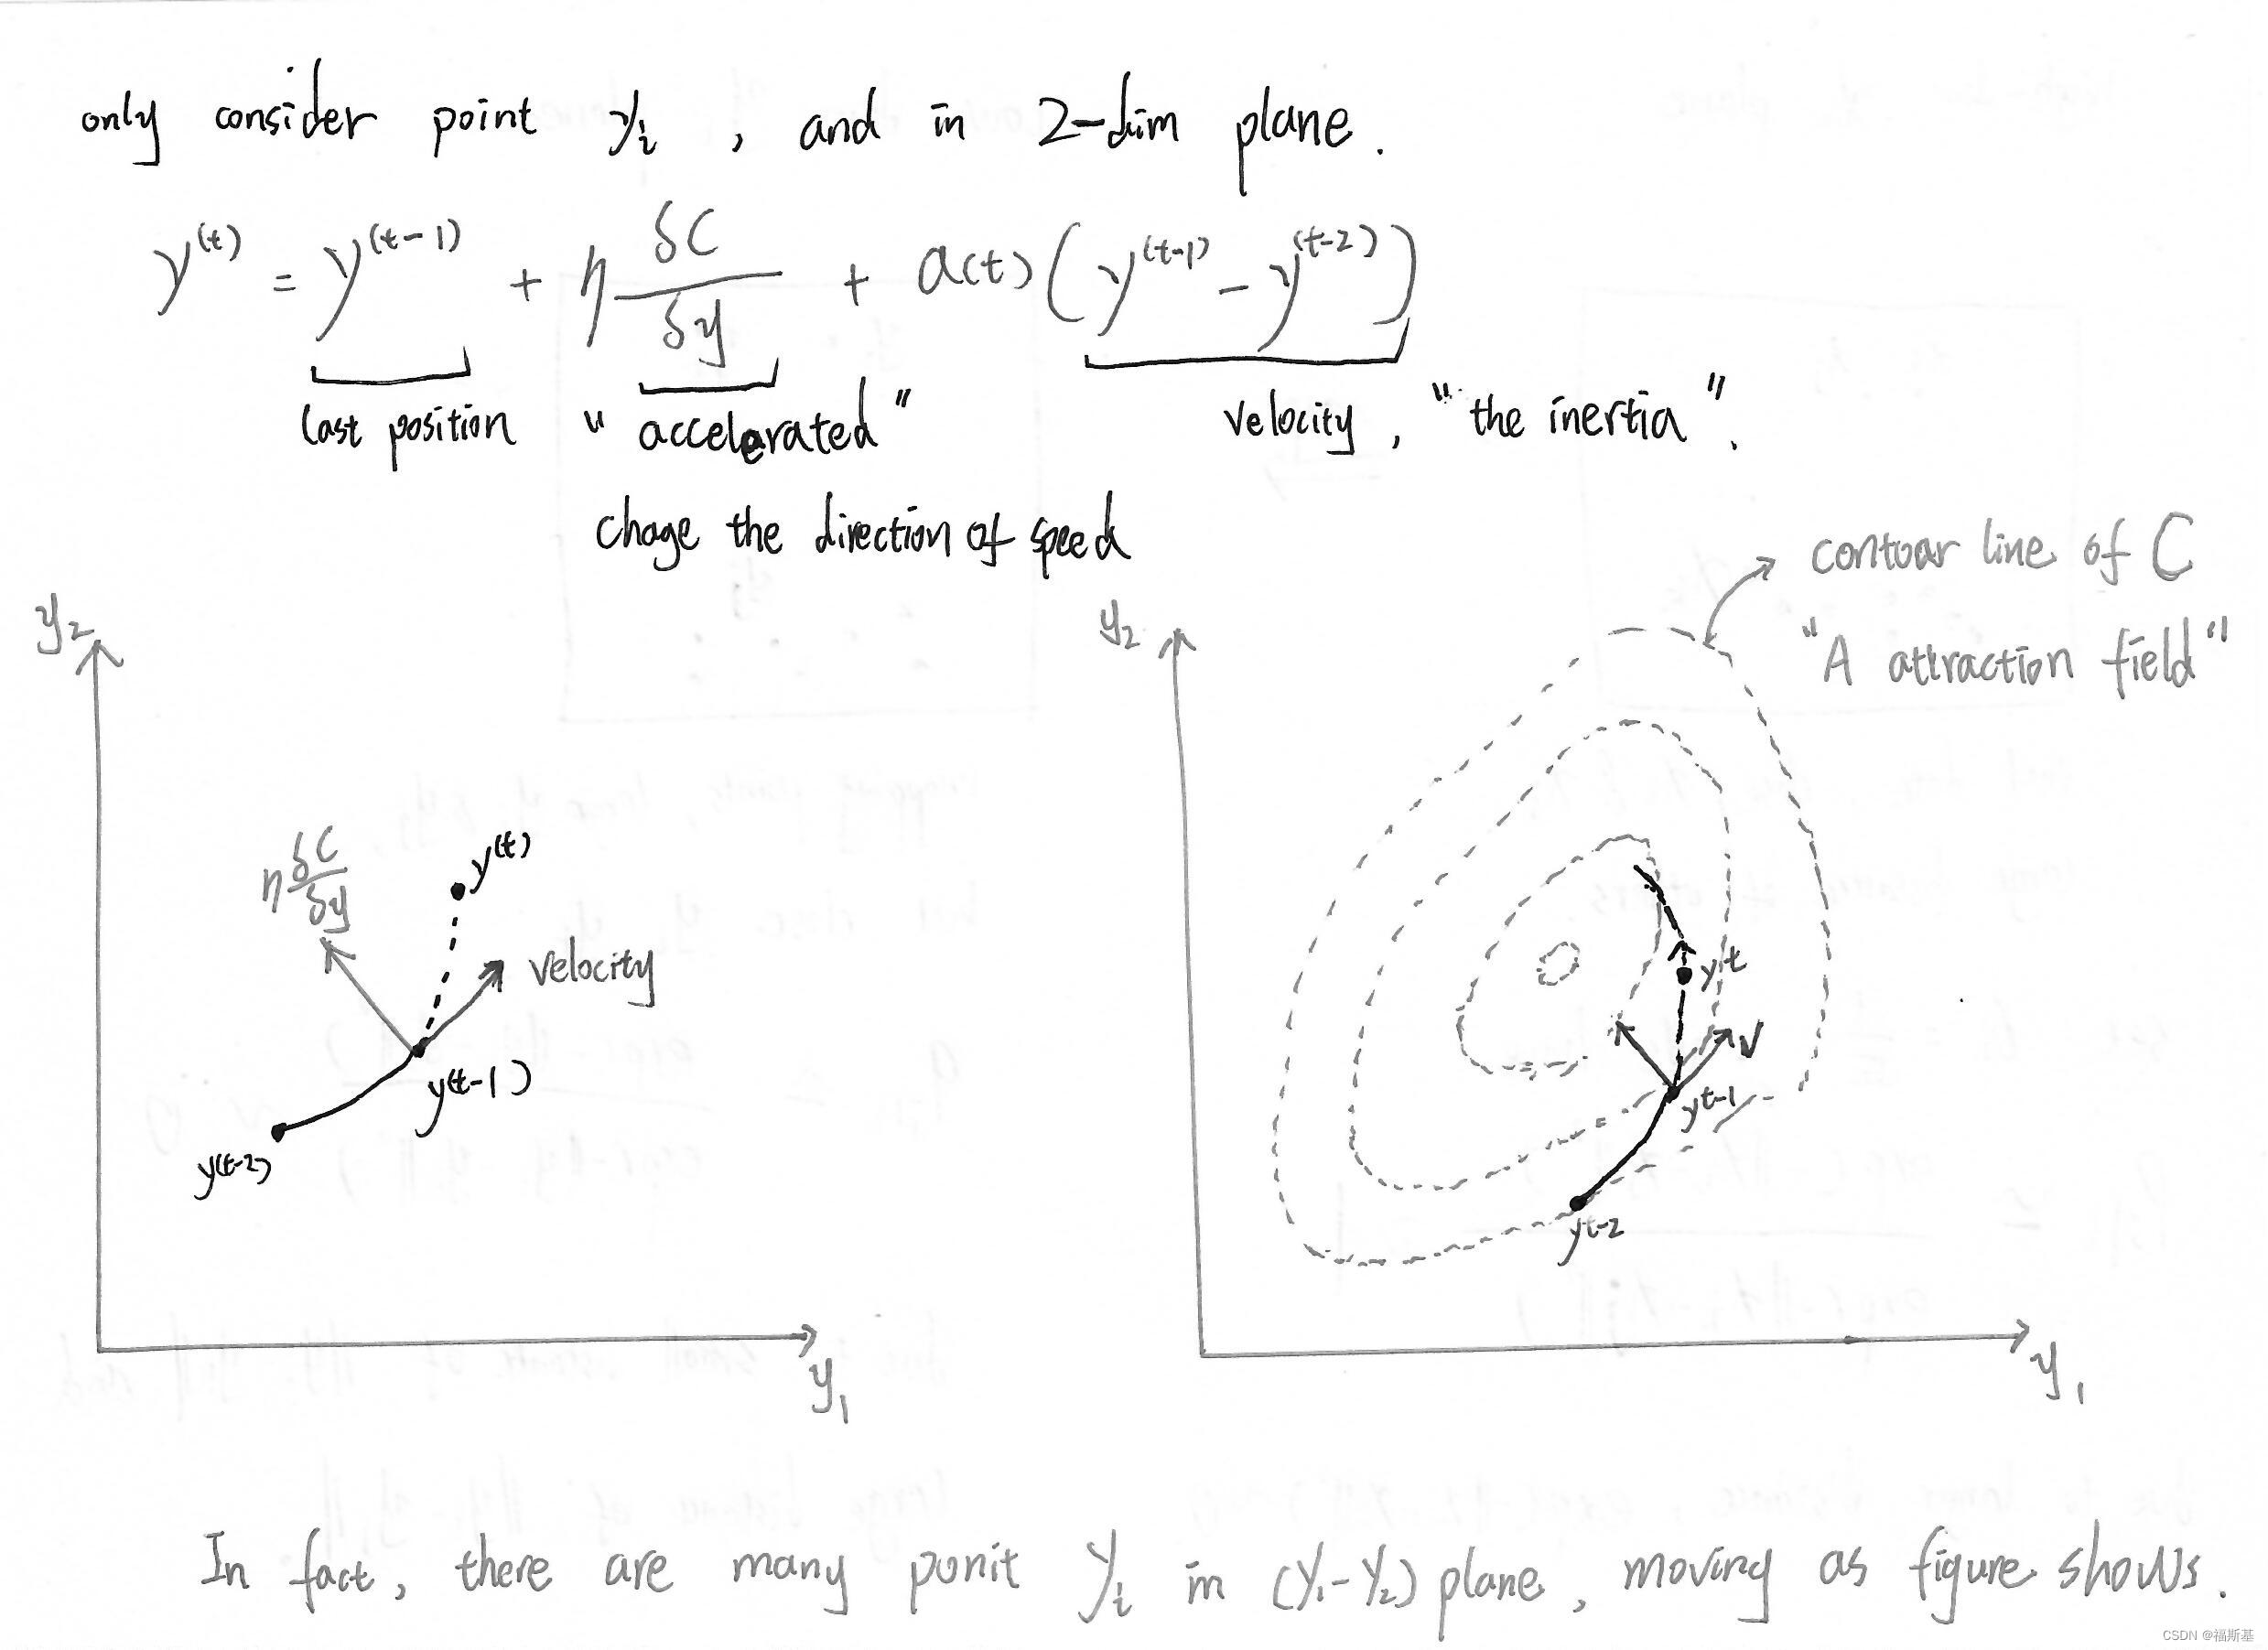 only consider point yᵢ , and in 2-dim plane.
y⁽ᵗ⁾ = y⁽ᵗ⁻¹⁾ + η δC/δy + a(t) (y⁽ᵗ⁻¹⁾ - y⁽ᵗ⁻²⁾)
last position "accelerated" velocity, "the inertia".
chage the direction of speed
contour line of C
"A attraction field"
y₂
η δC/δy
y⁽ᵗ⁾
velocity
y(t-1)
y(t-2)
y₁
y₂
yᵗ
V
yᵗ⁻¹
yᵗ⁻²
y₁
In fact, there are many ponit yᵢ in (y₁-y₂) plane, moving as figure shows.
CSDN @福斯基